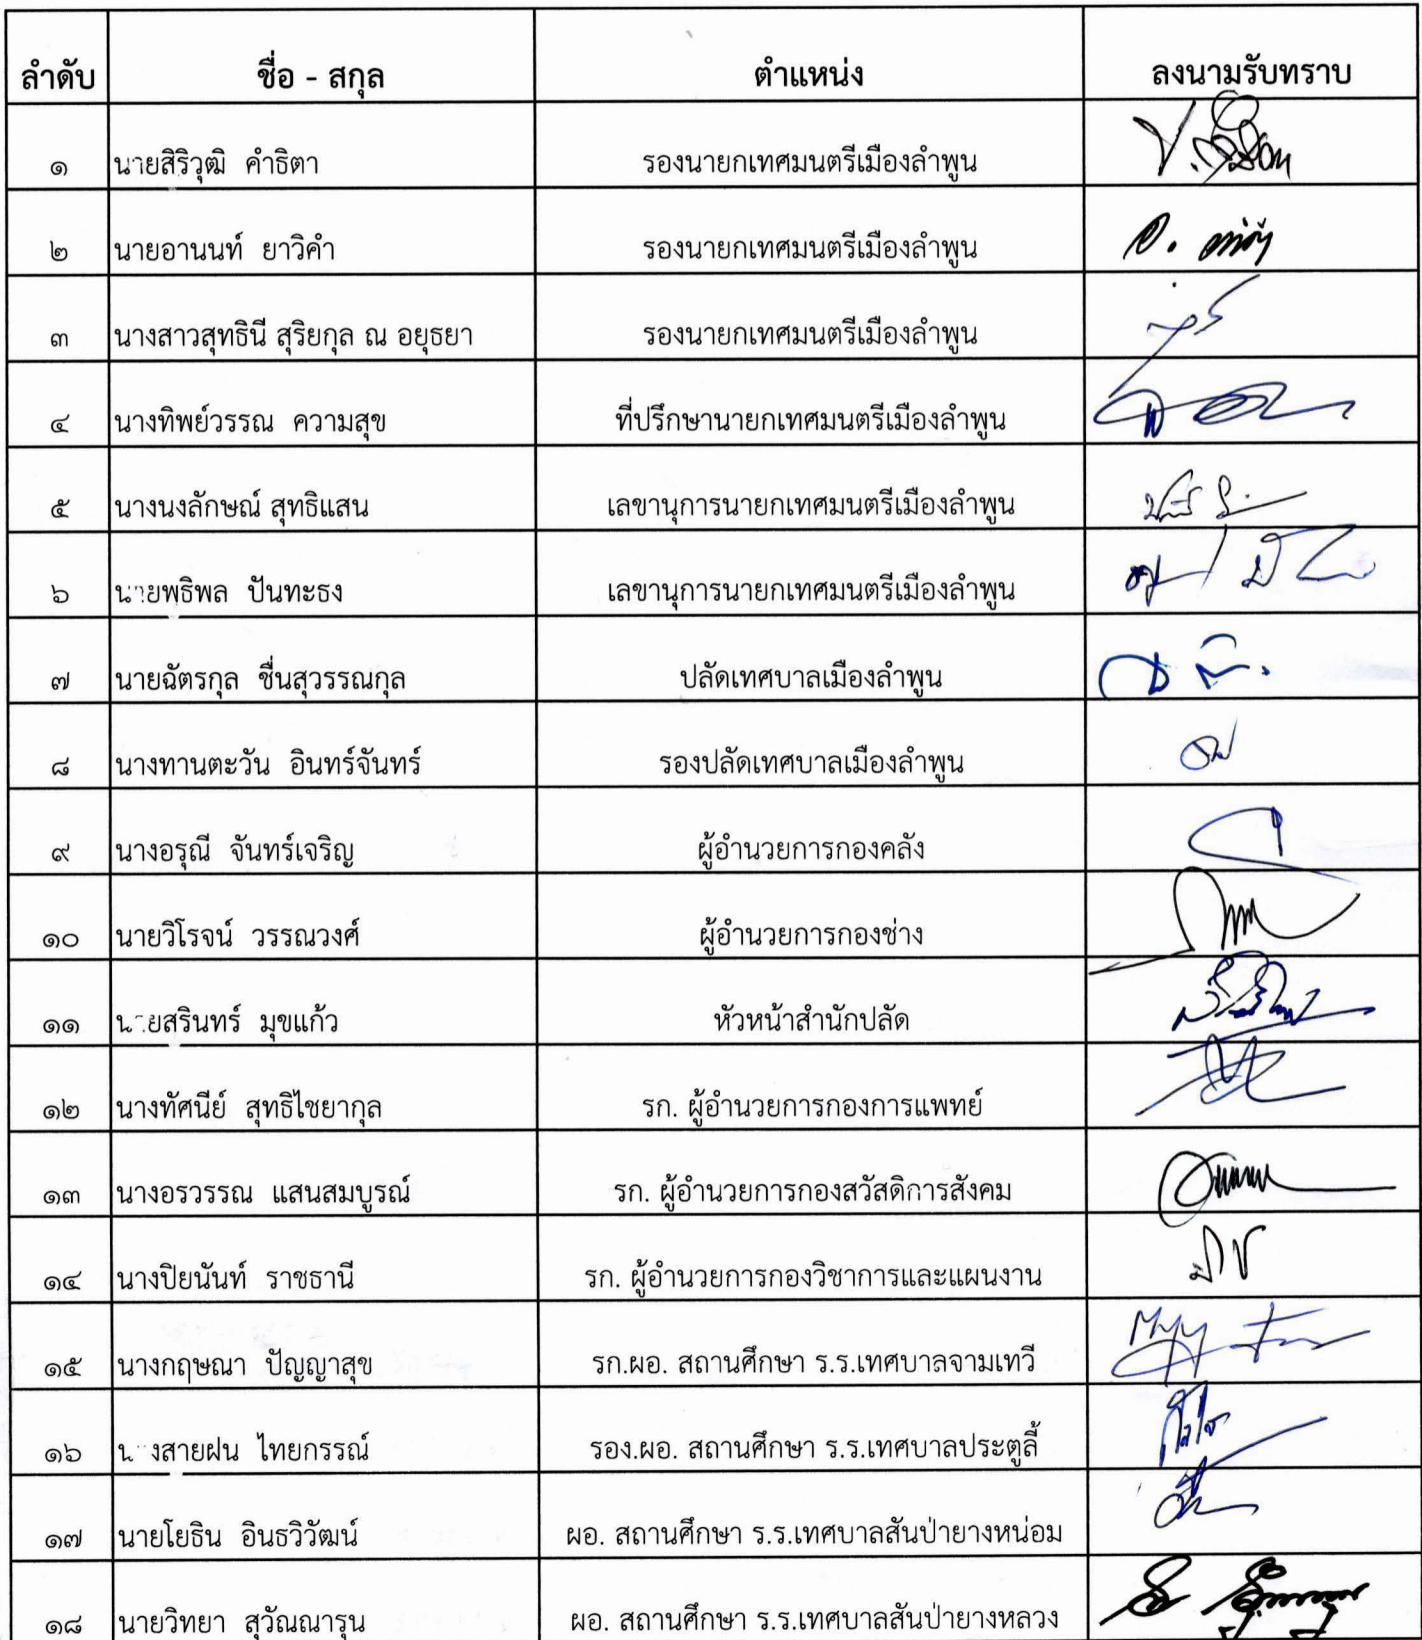 ลำดับ ชื่อ - สกุล ตำแหน่ง ลงนามรับทราบ
๑ นายสิริวุฒิ คำธิตา รองนายกเทศมนตรีเมืองลำพูน
๒ นายอานนท์ ยาวิคำ รองนายกเทศมนตรีเมืองลำพูน
๓ นางสาวสุทธินี สุริยกุล ณ อยุธยา รองนายกเทศมนตรีเมืองลำพูน
๔ นางทิพย์วรรณ ความสุข ที่ปรึกษานายกเทศมนตรีเมืองลำพูน
๕ นางนงลักษณ์ สุทธิแสน เลขานุการนายกเทศมนตรีเมืองลำพูน
๖ นายพุธิพล ปันทะธง เลขานุการนายกเทศมนตรีเมืองลำพูน
๗ นายฉัตรกุล ชื่นสุวรรณกุล ปลัดเทศบาลเมืองลำพูน
๘ นางทานตะวัน อินทร์จันทร์ รองปลัดเทศบาลเมืองลำพูน
๙ นางอรุณี จันทร์เจริญ ผู้อำนวยการกองคลัง
๑๐ นายวิโรจน์ วรรณวงศ์ ผู้อำนวยการกองช่าง
๑๑ นายสรินทร์ มุขแก้ว หัวหน้าสำนักปลัด
๑๒ นางทัศนีย์ สุทธิไชยากุล รก. ผู้อำนวยการกองการแพทย์
๑๓ นางอรวรรณ แสนสมบูรณ์ รก. ผู้อำนวยการกองสวัสดิการสังคม
๑๔ นางปิยนันท์ ราชธานี รก. ผู้อำนวยการกองวิชาการและแผนงาน
๑๕ นางกฤษณา ปัญญาสุข รก.ผอ. สถานศึกษา ร.ร.เทศบาลจามเทวี
๑๖ นางสายฝน ไทยกรรณ์ รอง.ผอ. สถานศึกษา ร.ร.เทศบาลประตูลี้
๑๗ นายโยธิน อินธวิวัฒน์ ผอ. สถานศึกษา ร.ร.เทศบาลสันป่ายางหน่อม
๑๘ นายวิทยา สุวัณณารุน ผอ. สถานศึกษา ร.ร.เทศบาลสันป่ายางหลวง